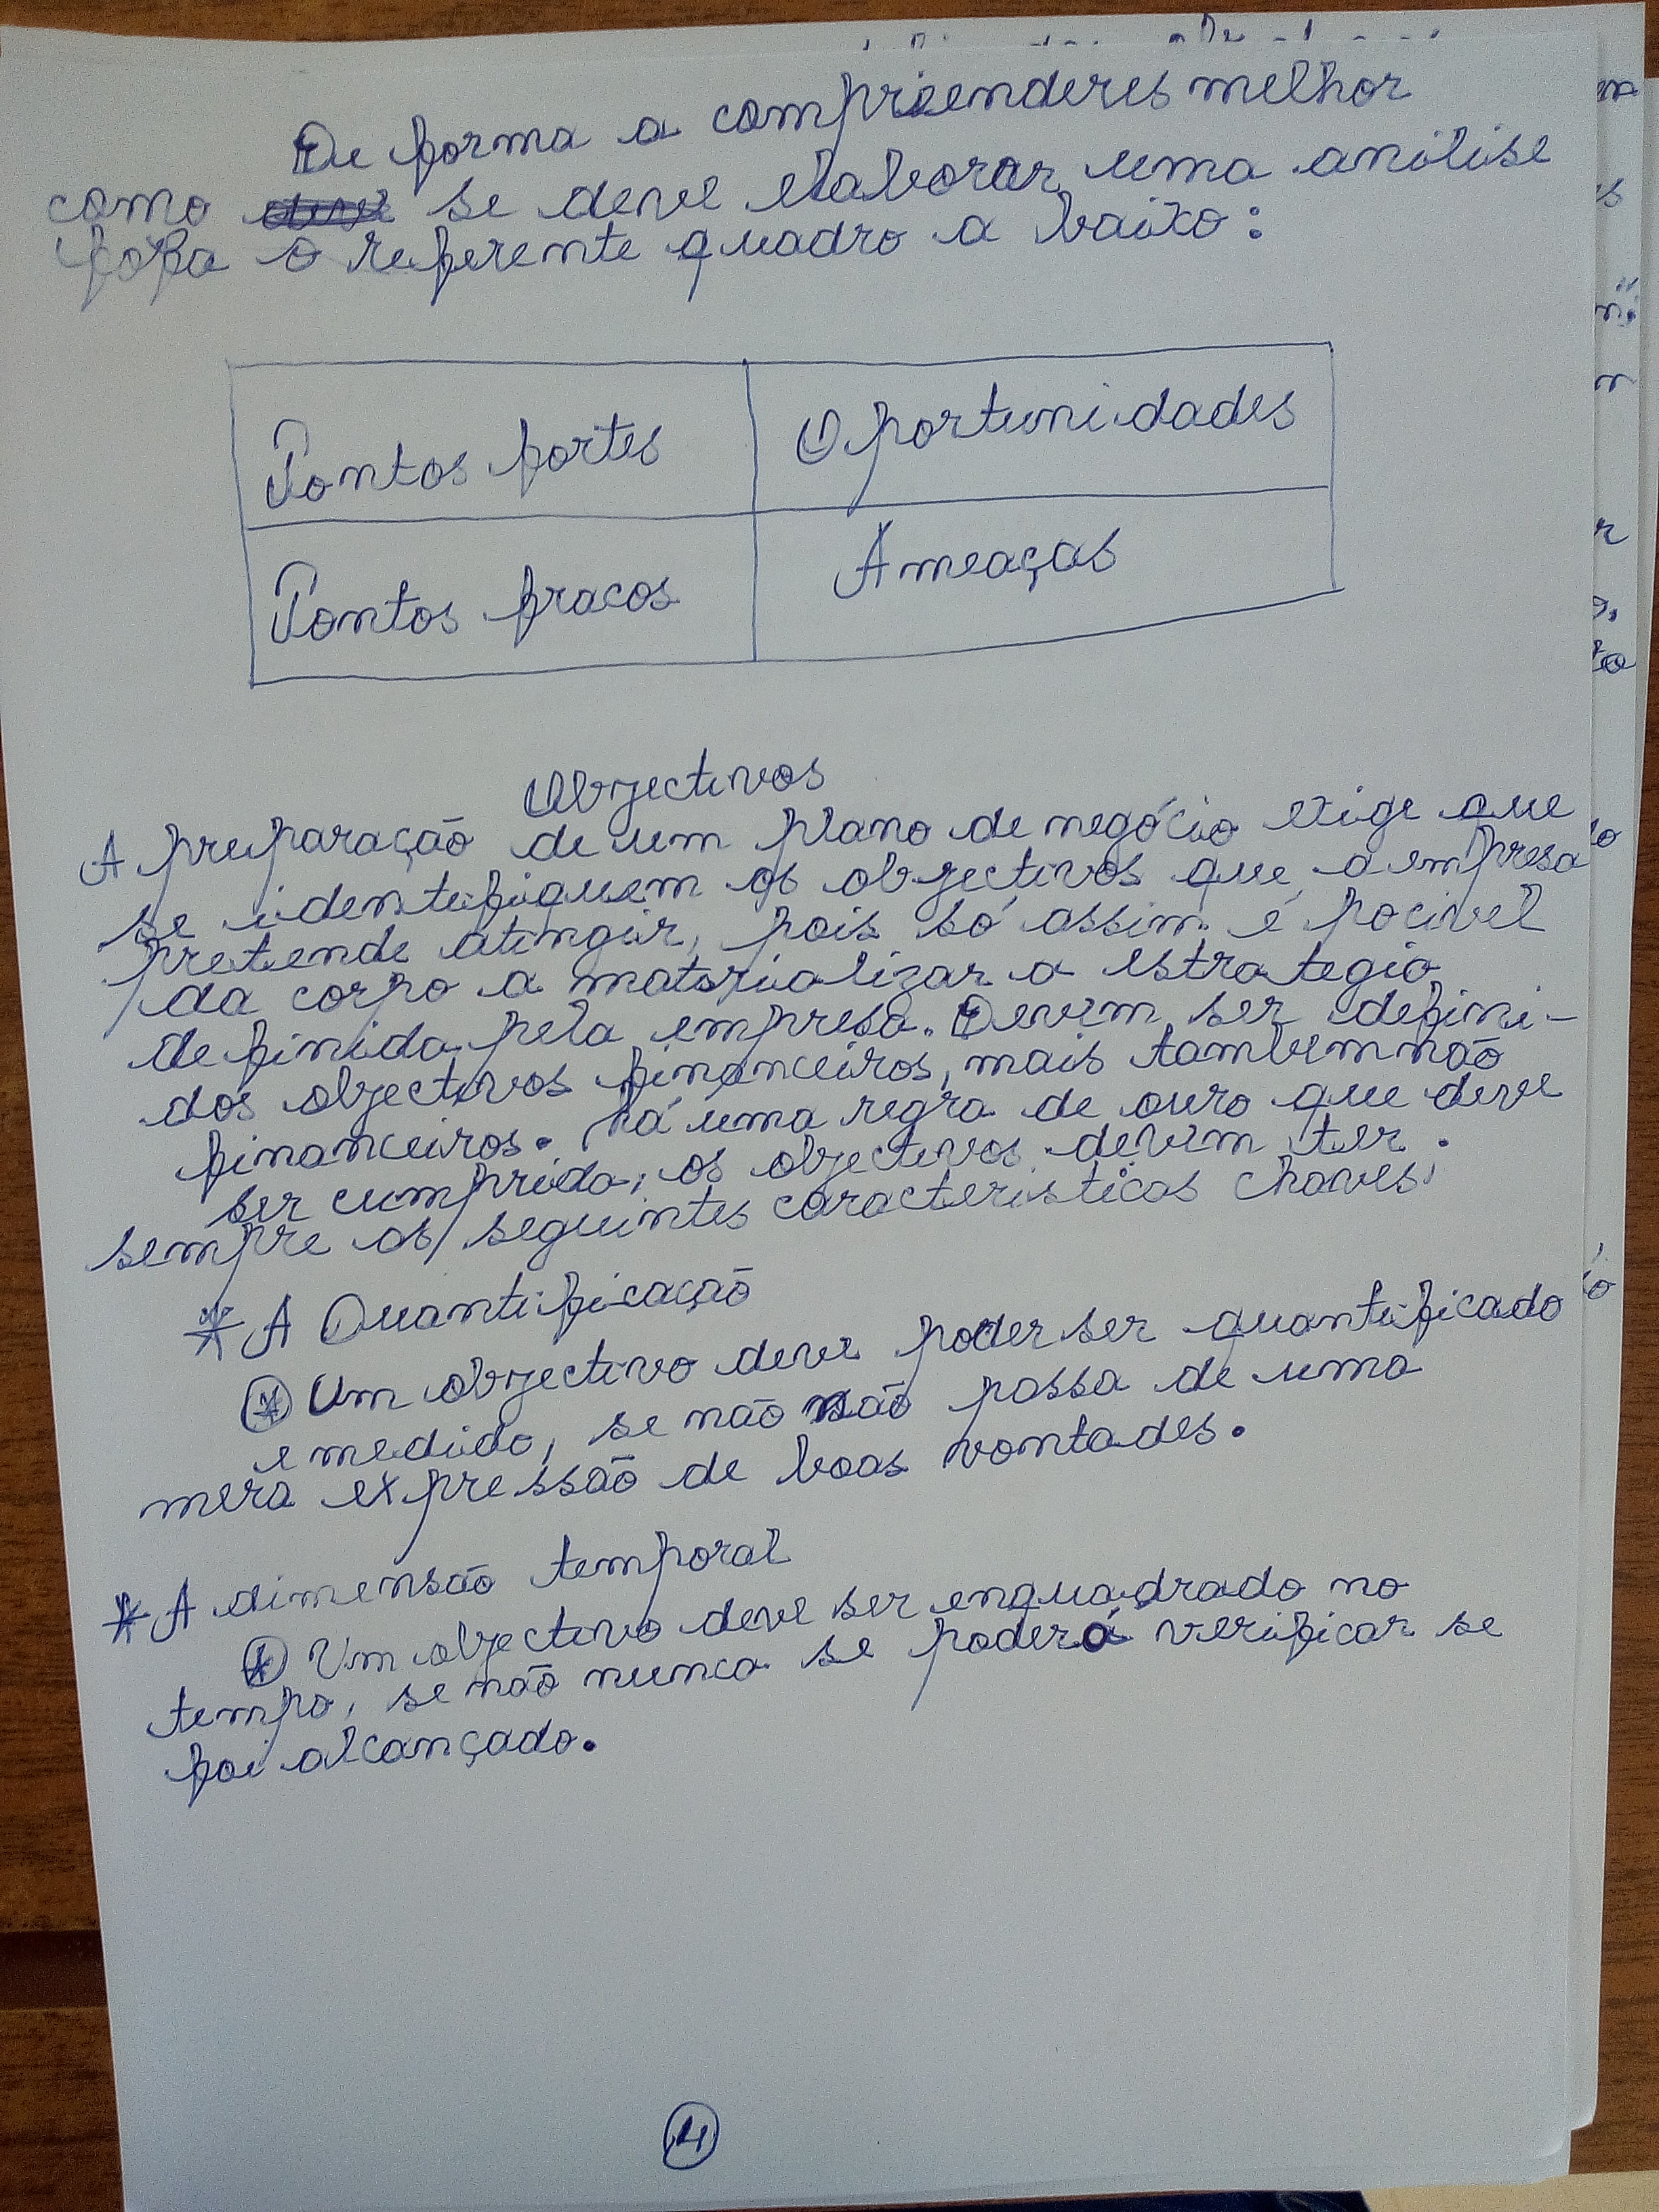 De forma a compreenderes melhor
como se deve elaborar uma análise
fofa o referente quadro a baixo:
Pontos fortes
Oportunidades
Pontos fracos
Ameaças
Objectivos
A preparação de um plano de negócio exige que
se identifiquem os objectivos que a empresa
pretende atingir, pois só assim é pocivel
da corpo a materializar a estrategia
definida pela empresa. Devem ser defini-
dos objectivos financeiros, mais tambem não
financeiros. há uma regra de ouro que deve
ser cumprida; os objectivos devem ter
sempre as seguintes caracteristicas chaves:
* A Quantificação
* Um objectivo deve poder ser quantificado
e medido, se não não passa de uma
mera expressão de boas vontades.
* A dimensão temporal
* Um objectivo deve ser enquadrado no
tempo, se não nunca se poderá verificar se
foi alcançado.
4